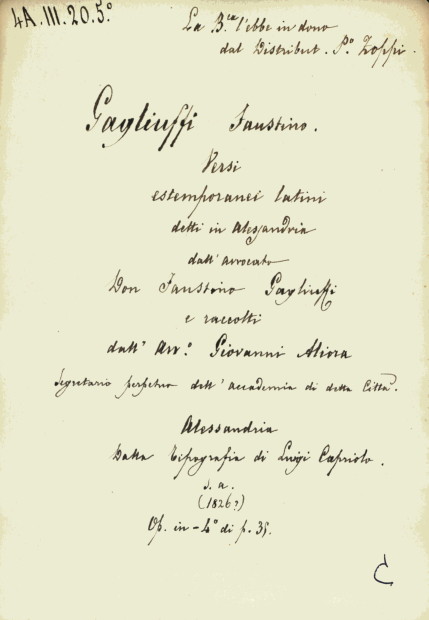 4A.III.20.5.º
La B.ca l'ebbe in dono
dal Distribut. P.º Zoppi.
Gagliuffi Faustino.
Versi
estemporanei latini
detti in Alessandria
dall'avvocato
Don Faustino Gagliuffi
e raccolti
dall' Avv.º Giovanni Aliora
Segretario perpetuo dell'accademia di detta Città.
Alessandria
Dalla Tipografia di Luigi Capriolo.
s. a.
(1826?)
Op. in-4º di p. 35.
C